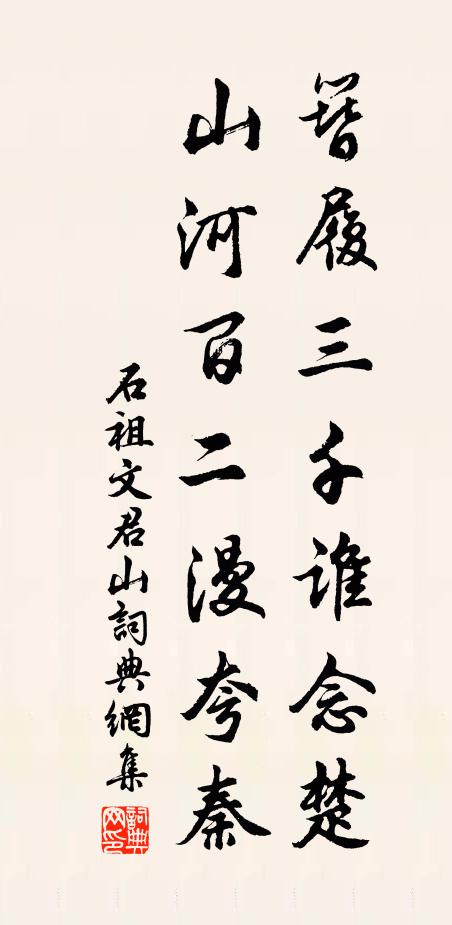 簪履三千誰念楚
山河百二漫夸秦
石祖文君山詞典網集
詞典網印